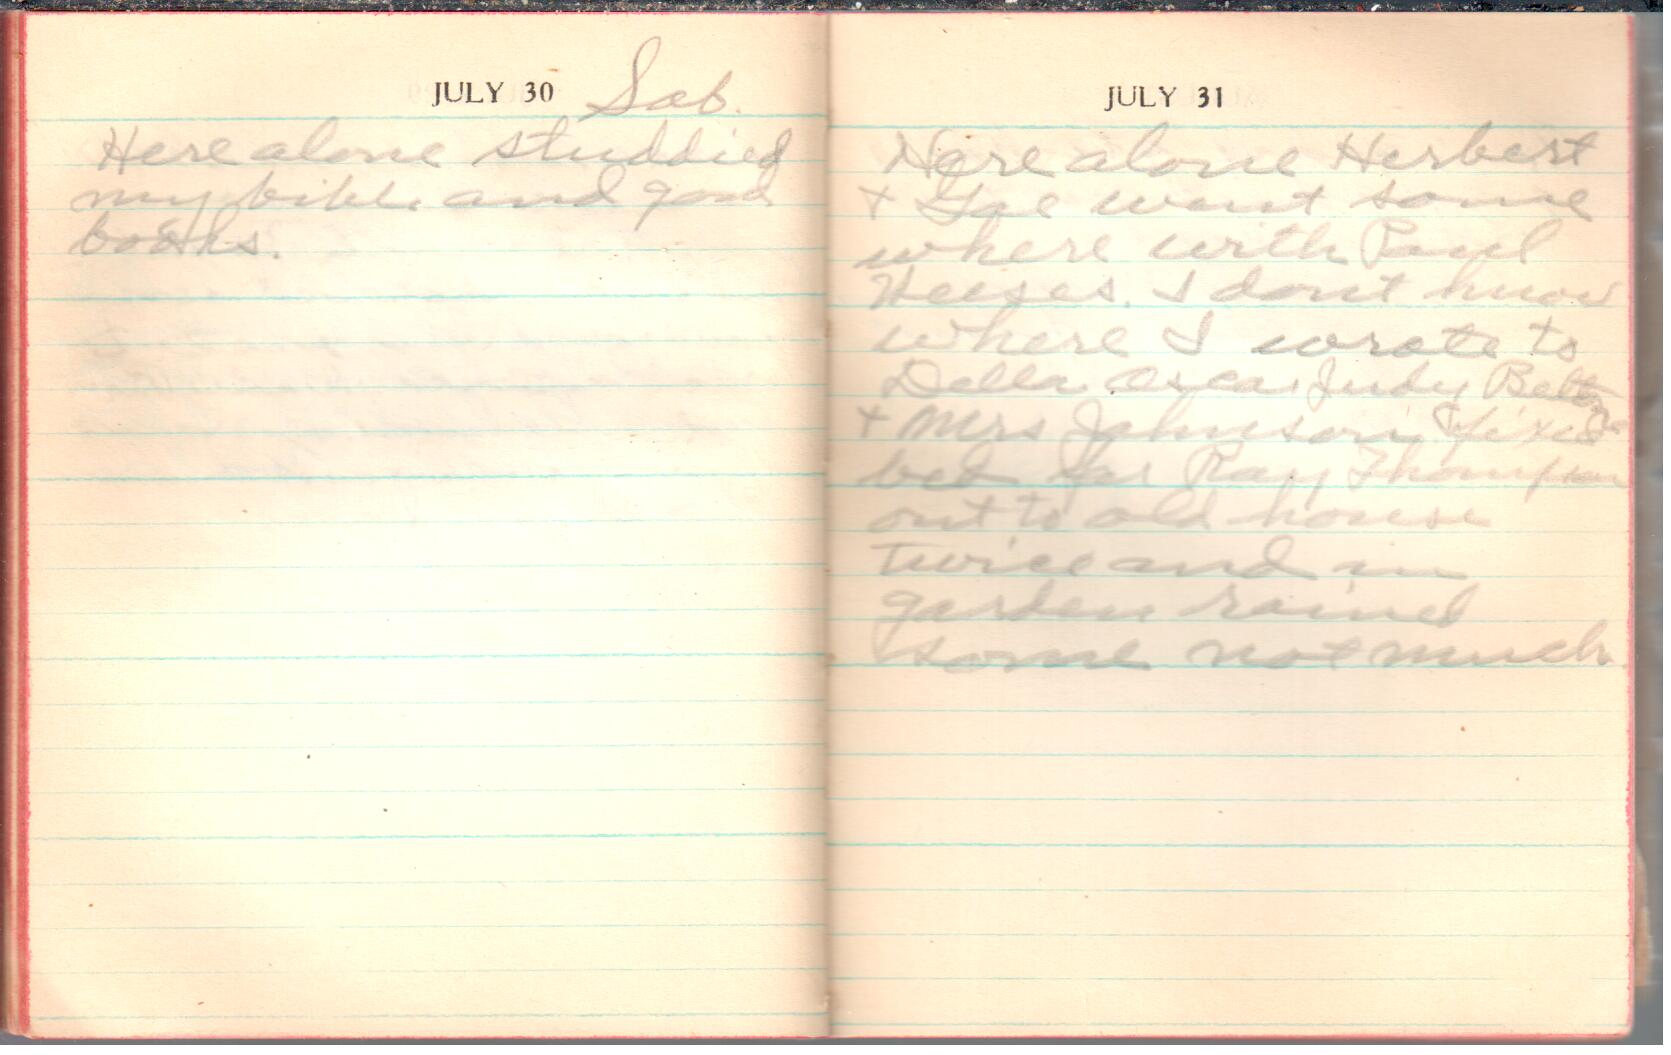 JULY 30 Sab.
Here alone studdied
my bible and good
books.
JULY 31
Here alone Herbert
+ went some
where with Paul
Heeses. I dont know
where I wrote to
Della Judy
+ Mrs Johnson fixed
bed for Ray Thompson
out to old house
twice and in
garden rained
some not much